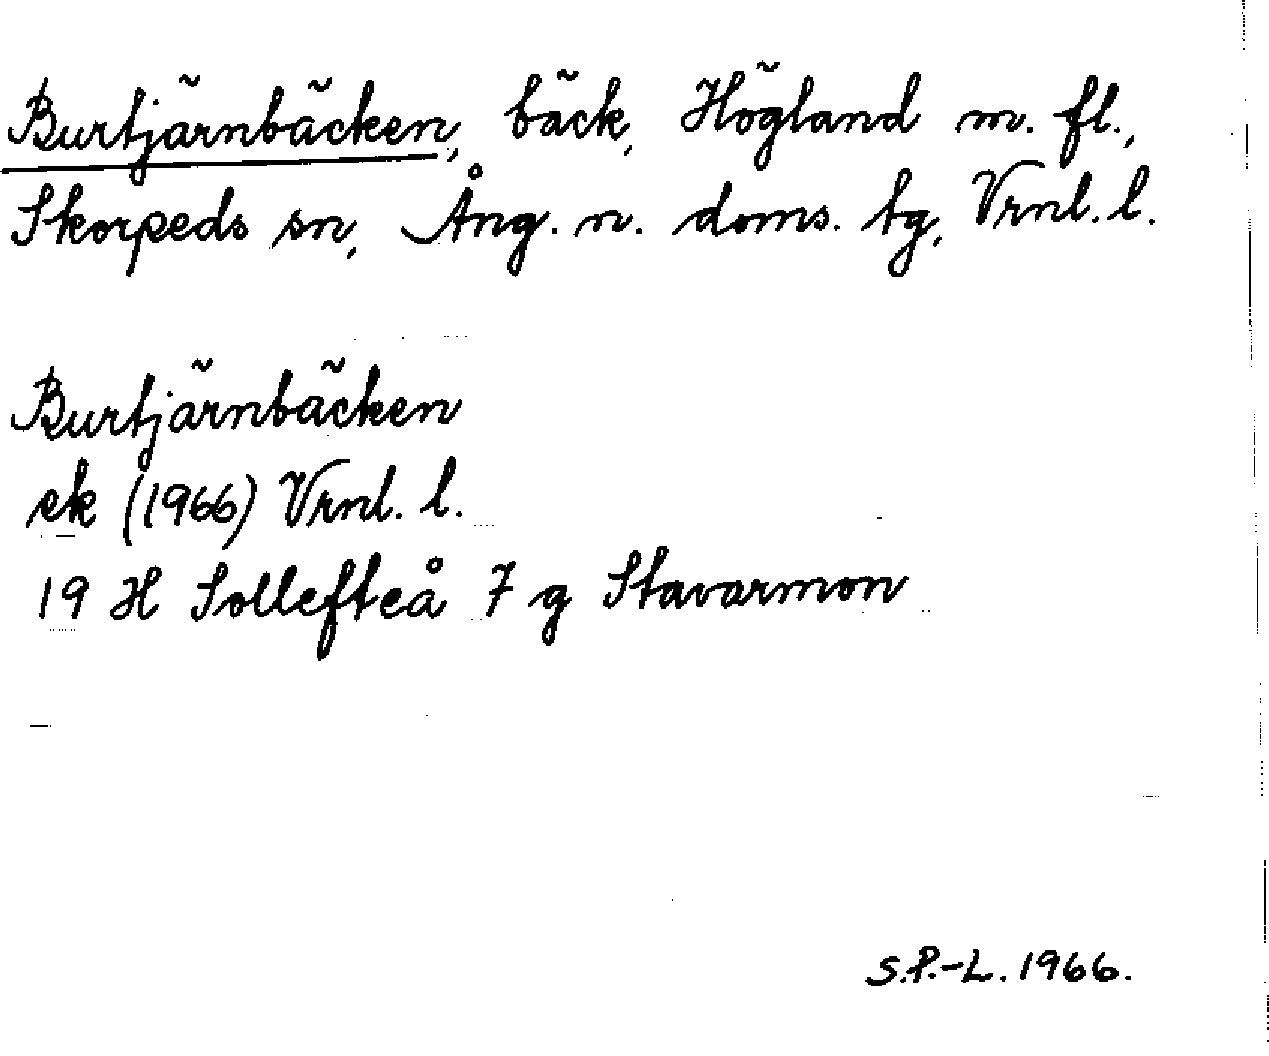 Burtjärnbäcken, bäck, Högland m. fl.,
Skorpeds sn, Ång. n. doms. tg, Vrnl. l.
Burtjärnbäcken
ek (1966) Vrnl. l.
19 H Sollefteå 7 g Stavarmon
S.P.-L. 1966.